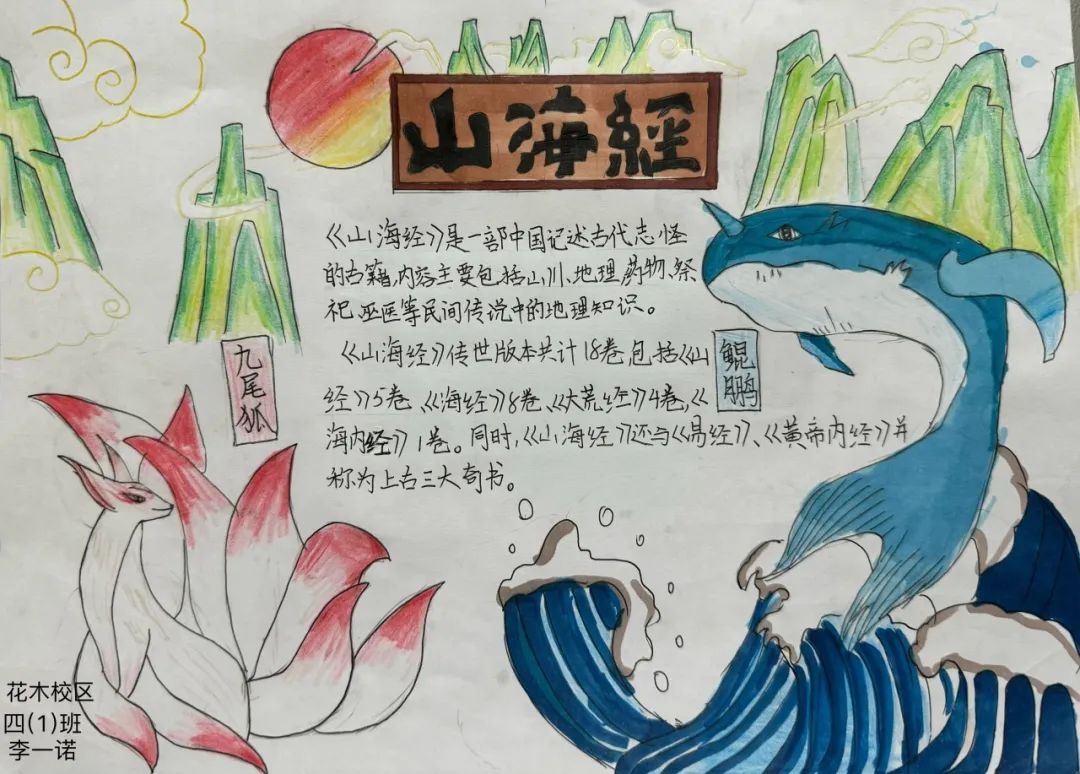 山海經
《山海经》是一部中国记述古代志怪
的古籍,内容主要包括山川、地理、药物、祭
祀、巫医等民间传说中的地理知识。
《山海经》传世版本共计18卷,包括《山
经》5卷、《海经》8卷、《大荒经》4卷,《
海内经》1卷。同时,《山海经》还与《易经》、《黄帝内经》并
称为上古三大奇书。
鲲鹏
九尾狐
花木校区
四(1)班
李一诺